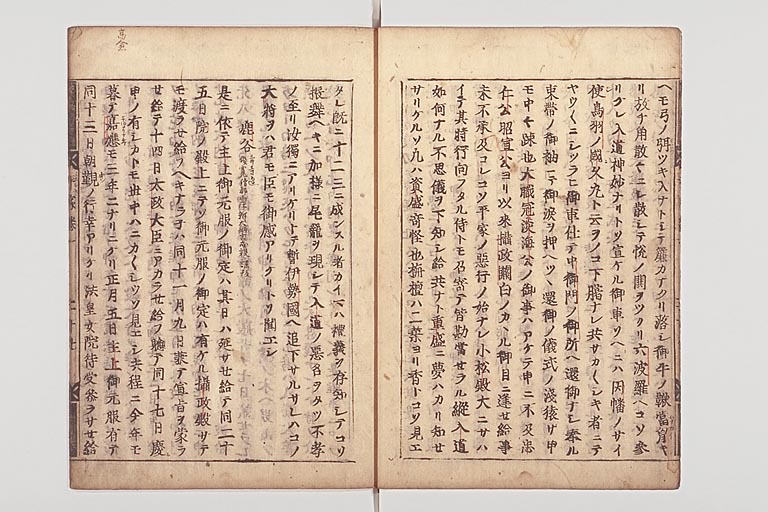 ヘモ弓ノ弭ツキ入ナトシテ簾カナクリ落シ御牛ノ鞦當胸キ
リ放チ角散〻ニシ散シテ悦ノ閧ヲツクリ六波羅ヘコソ參
リケレ入道神妙ナリトソ宣ケル御車ソヘニハ因幡ノサイ
使鳥羽ノ國久丸ト云ヲノコ下臈ナレ共サカ〳〵シキ者ニテ
ヤウ〳〵ニシツラヒ御車仕テ中御門ノ御所ヘ還御ナシ奉ル
束帶ノ御袖ニテ御涙ヲ押ヘツヽ還御ノ儀式ノ淺猿サ申
モ中〻踈也大職冠淡海公ノ御事ハアケテ申ニ不及忠
仁公昭宣公ヨリ以來攝政關白ノカヽル御目ニ逢セ給事
未不承及コレコソ平家ノ惡行ノ始ナレ小松殿大ニサハ
イテ其時行向フタル侍トモ召寄テ皆勘當セラル縱入道
如何ナル不思儀ヲ下知シ給共ナト重盛ニ夢ハカリ知セ
サリケルソ凡ハ資盛奇怪也栴檀ハ二葉ヨリ香トコソ見エ
タレ既ニ十二三ニ成ンスル者カイマハ禮義ヲ存知シテコソ
振舞ヘキニ加樣ニ尾籠ヲ現シテ入道ノ惡名ヲタツ不孝
ノ至リ汝獨ニアリケリトテ暫伊勢國ヘ追下サルサレハコノ
大將ヲハ君モ臣モ御感アリケリトソ聞エシ
鹿谷
是ニ依テ主上御元服ノ御定ハ其日ハ延サセ給テ同二十
五日院ノ殿上ニテソ御元服ノ御定ハ有ケル攝政殿サテ
モ渡ラセ給フヘキナラネハ同十一月九日兼テ宣旨ヲ蒙ラ
セ給テ十四日太政大臣ニアカラセ給フ軈テ同十七日慶
申ノ有シカトモ世中ハニカ〳〵シウソ見エシ共程ニ今年モ
暮テ嘉應モ三年ニナリニケリ正月五日主上御元服有テ
同十三日朝覲ノ行幸アリケリ法皇女院待受參ラサセ給
高倉
二十七